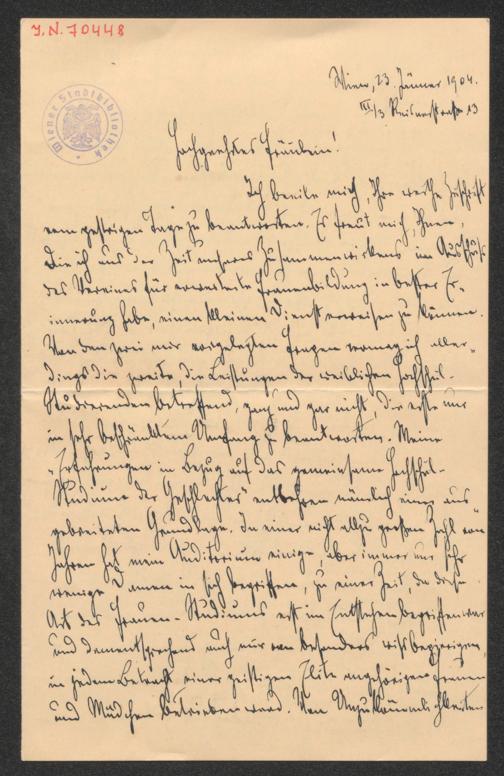 J.N. 70448
Wiener Stadtbibliothek
Wien, 23. Jänner 1904.
III/3 Reisnerstraße 13
Hochgeehrtes Fräulein!
Ich beeile mich, Ihre werthe Zuschrift
vom gestrigen Tage zu beantworten. Es freut mich, Ihnen,
die ich aus der Zeit unseres Zusammenwirkens im Ausschuß
des Vereines für erweiterte Frauenbildung in bester Er-
innerung habe, einen kleinen Dienst erweisen zu können.
Von den zwei mir vorgelegten Fragen vermag ich aller-
dings die zweite, die Leistungen der weiblichen Hochschul-
Studierenden betreffend, ganz und gar nicht, die erste nur
in sehr beschränktem Umfang zu beantworten. Meine
"Erfahrungen in Bezug auf das gemeinsame Hochschul-
Studium der Geschlechter" entbehren nämlich einer aus-
gebreiteten Grundlage. In einer nicht allzu großen Zahl von
Jahren hat mein Auditorium einige, aber immer nur sehr
wenige Damen in sich begriffen, zu einer Zeit, da diese
Art des Frauen-Studiums erst im Entstehen begriffen war
und dementsprechend auch nur von besonders wißbegierigen,
in jedem Betracht einer geistigen Elite angehörigen Frauen
und Mädchen betrieben ward. Von Unzukömmlichkeiten